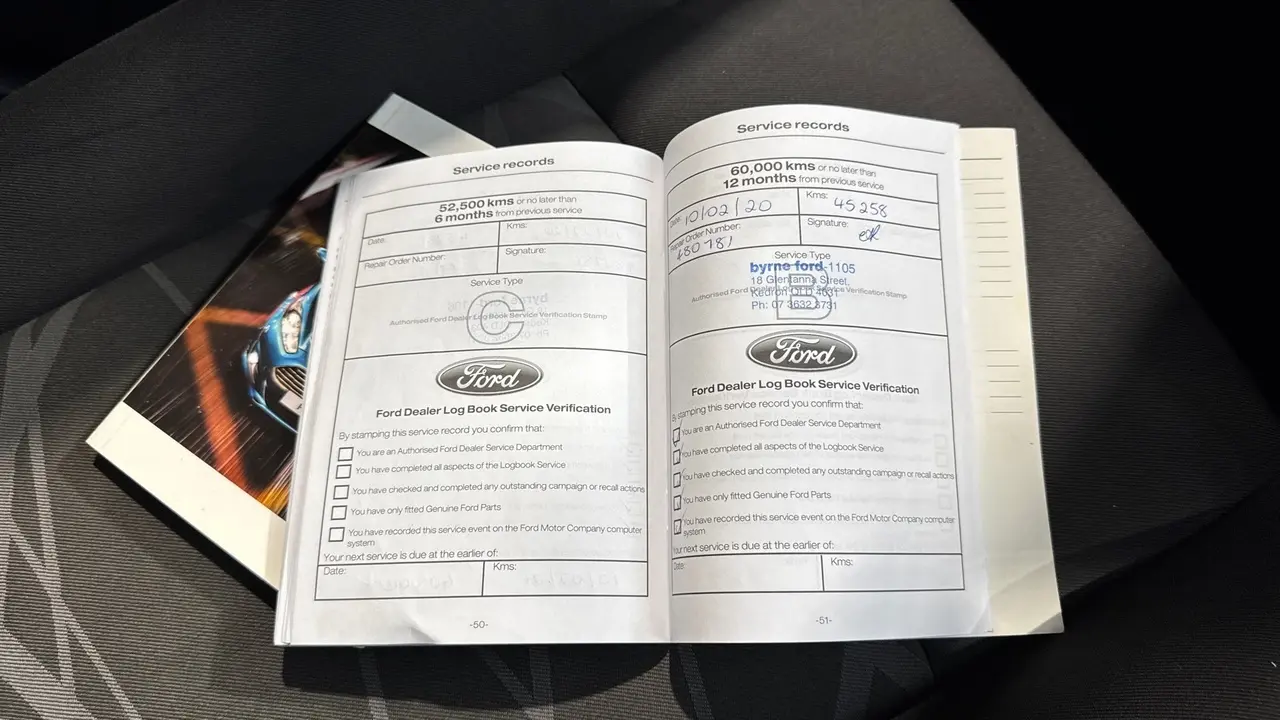 Service records
52,500 kms or no later than
6 months from previous service
Date:
Kms:
Repair Order Number:
Signature:
Service Type
C
Authorised Ford Dealer Log Book Service Verification Stamp
Ford
Ford Dealer Log Book Service Verification
By stamping this service record you confirm that:
You are an Authorised Ford Dealer Service Department
You have completed all aspects of the Logbook Service
You have checked and completed any outstanding campaign or recall actions
You have only fitted Genuine Ford Parts
You have recorded this service event on the Ford Motor Company computer
system
Your next service is due at the earlier of:
Date:
Kms:
-50-
Service records
60,000 kms or no later than
12 months from previous service
Date: 10/02/20
Kms: 45258
Repair Order Number:
480781
Signature:
Service Type
byrne ford-1105
18 Glentanna Street,
B
Authorised Ford Dealer Log Book Service Verification Stamp
Kedron QLD 4031
Ph: 07 3632 3731
Ford
Ford Dealer Log Book Service Verification
By stamping this service record you confirm that:
You are an Authorised Ford Dealer Service Department
You have completed all aspects of the Logbook Service
You have checked and completed any outstanding campaign or recall actions
You have only fitted Genuine Ford Parts
You have recorded this service event on the Ford Motor Company computer
system
Your next service is due at the earlier of:
Date:
Kms:
-51-